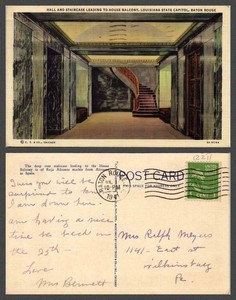 HALL AND STAIRCASE LEADING TO HOUSE BALCONY, LOUISIANA STATE CAPITOL, BATON ROUGE
The deep rose staircase leading to the House
Balcony is of Rojo Alicante marble from
in Spain.
POST CARD
BATON ROUGE
10 PM
1941
Sure you will be
surprised to know
I am down here.
am having a nice
time be back on
the 25th -
Love
Mrs Bennett
Mrs Ralph Meyers
1141 - East St
Pa.